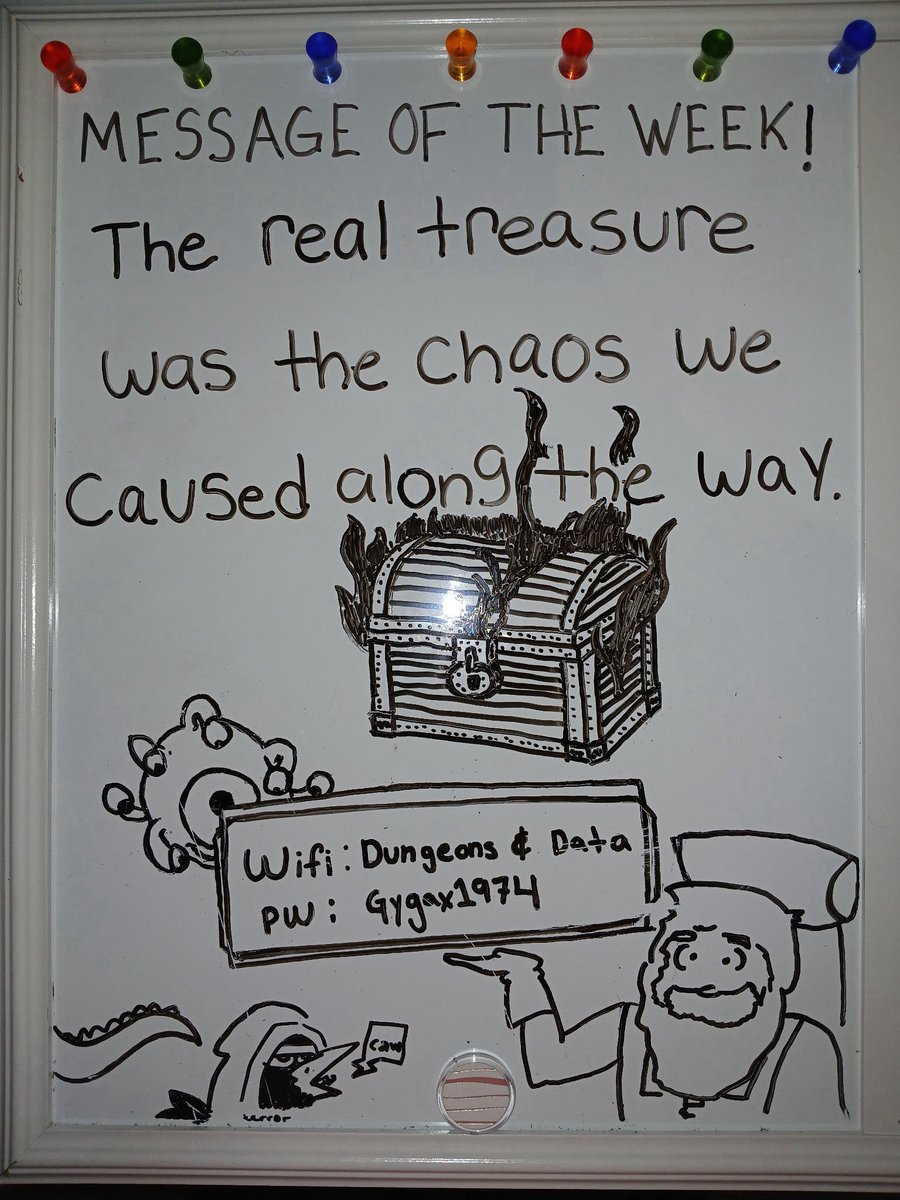 MESSAGE OF THE WEEK!
The real treasure
was the chaos we
Caused along the way.
Wifi: Dungeons & Data
PW: Gygax1974
caw
terror